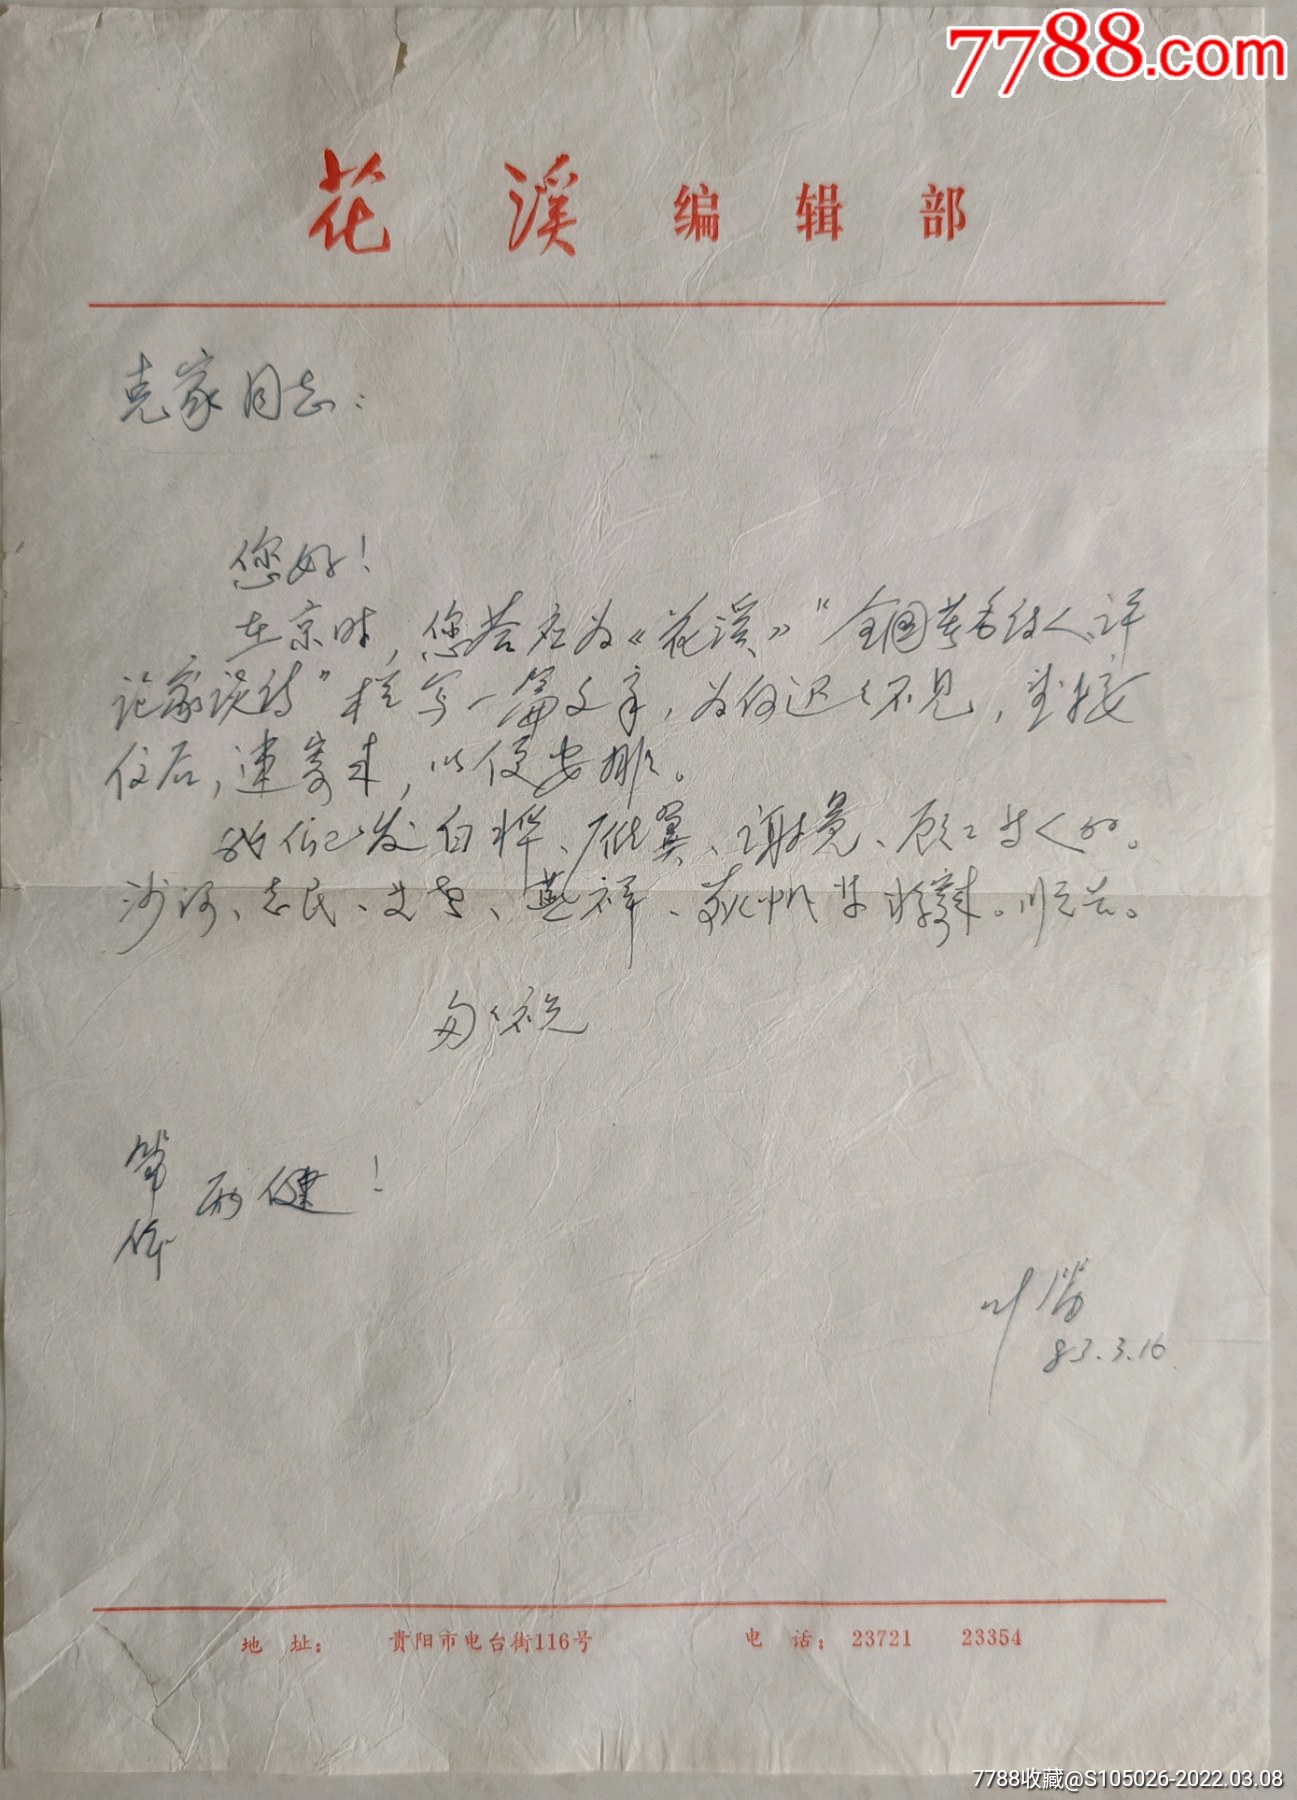 7788.com
花溪编辑部
克家同志：
您好！
在京时，您答应为《花溪》“全国著名诗人、评
论家谈诗”栏写一篇文章，为何迟迟不见，望接
信后，速寄来，以便安排。
我们已发白桦、雁翼、谢冕、顾工诗人的。
沙河、志民、燕祥、荻帆
匆匆祝
笔 两健！
体
叶笛
83.3.16
地 址： 贵阳市电台街116号 电 话：23721 23354
7788收藏@S105026-2022.03.08